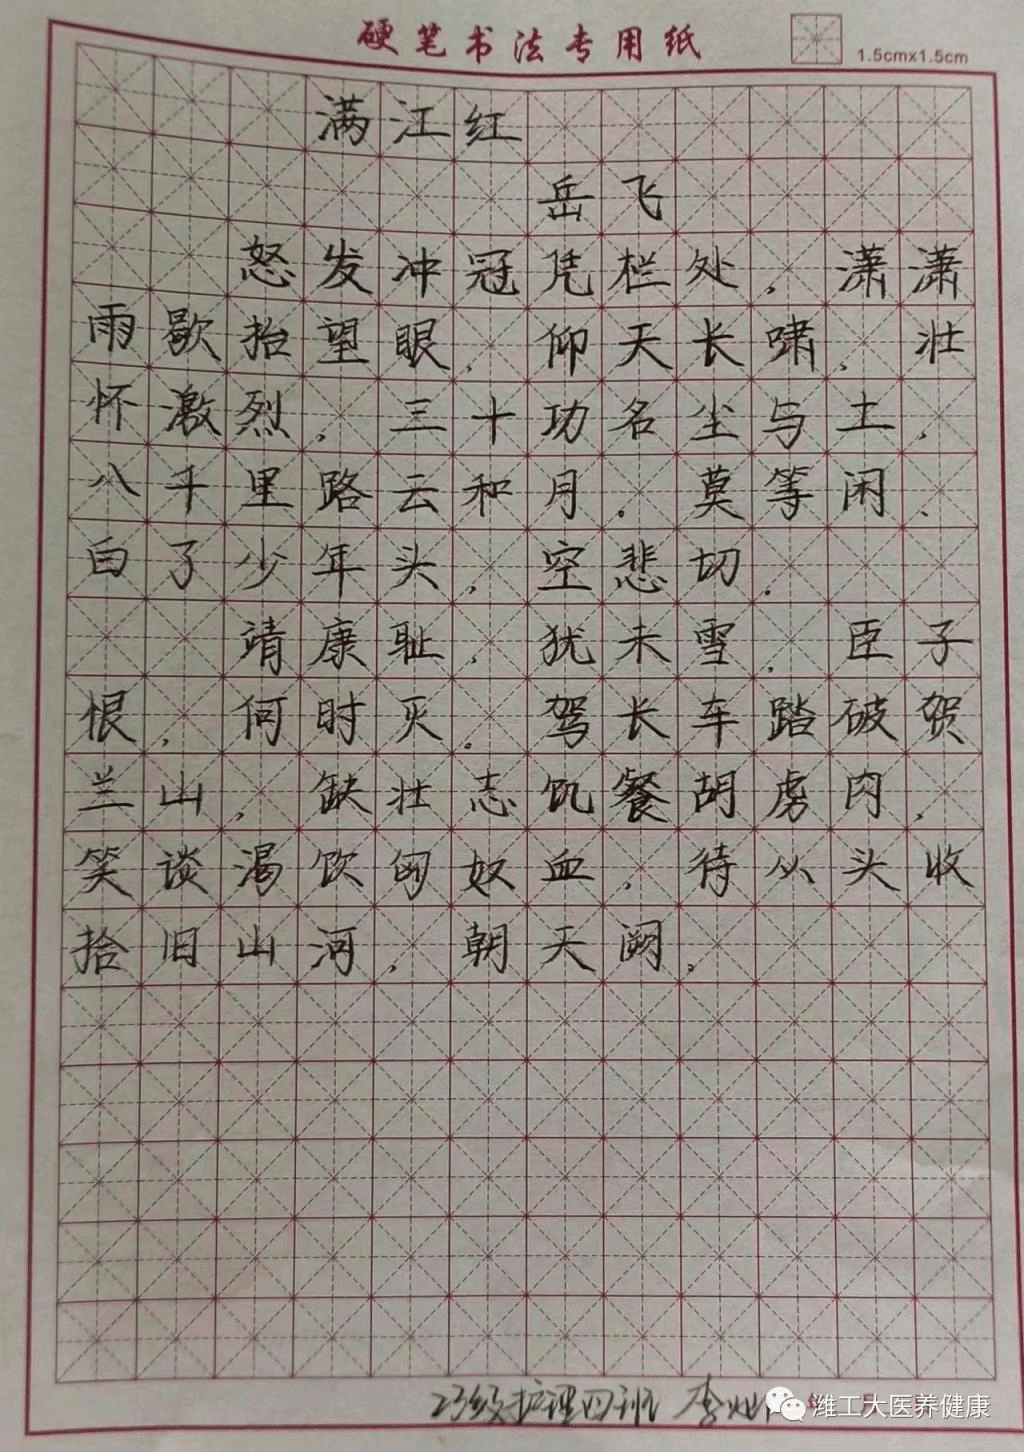 硬笔书法专用纸
1.5cmx1.5cm
满江红
岳飞
怒发冲冠凭栏处，潇潇
雨歇抬望眼，仰天长啸，壮
怀激烈，三十功名尘与土，
八千里路云和月。莫等闲、
白了少年头，空悲切．
靖康耻，犹未雪．臣子
恨，何时灭。驾长车踏破贺
兰山，缺壮志饥餐胡虏肉，
笑谈渴饮匈奴血，待从头收
拾旧山河，朝天阙，
23级护理四班 李
潍工大医养健康